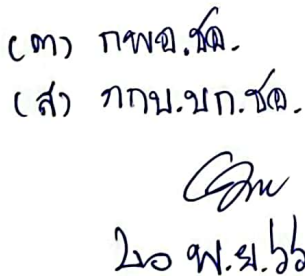 (ต) กพอ.ชด.
(ส) กกบ.บก.ชด.
๒๐ พ.ย. ๖๖